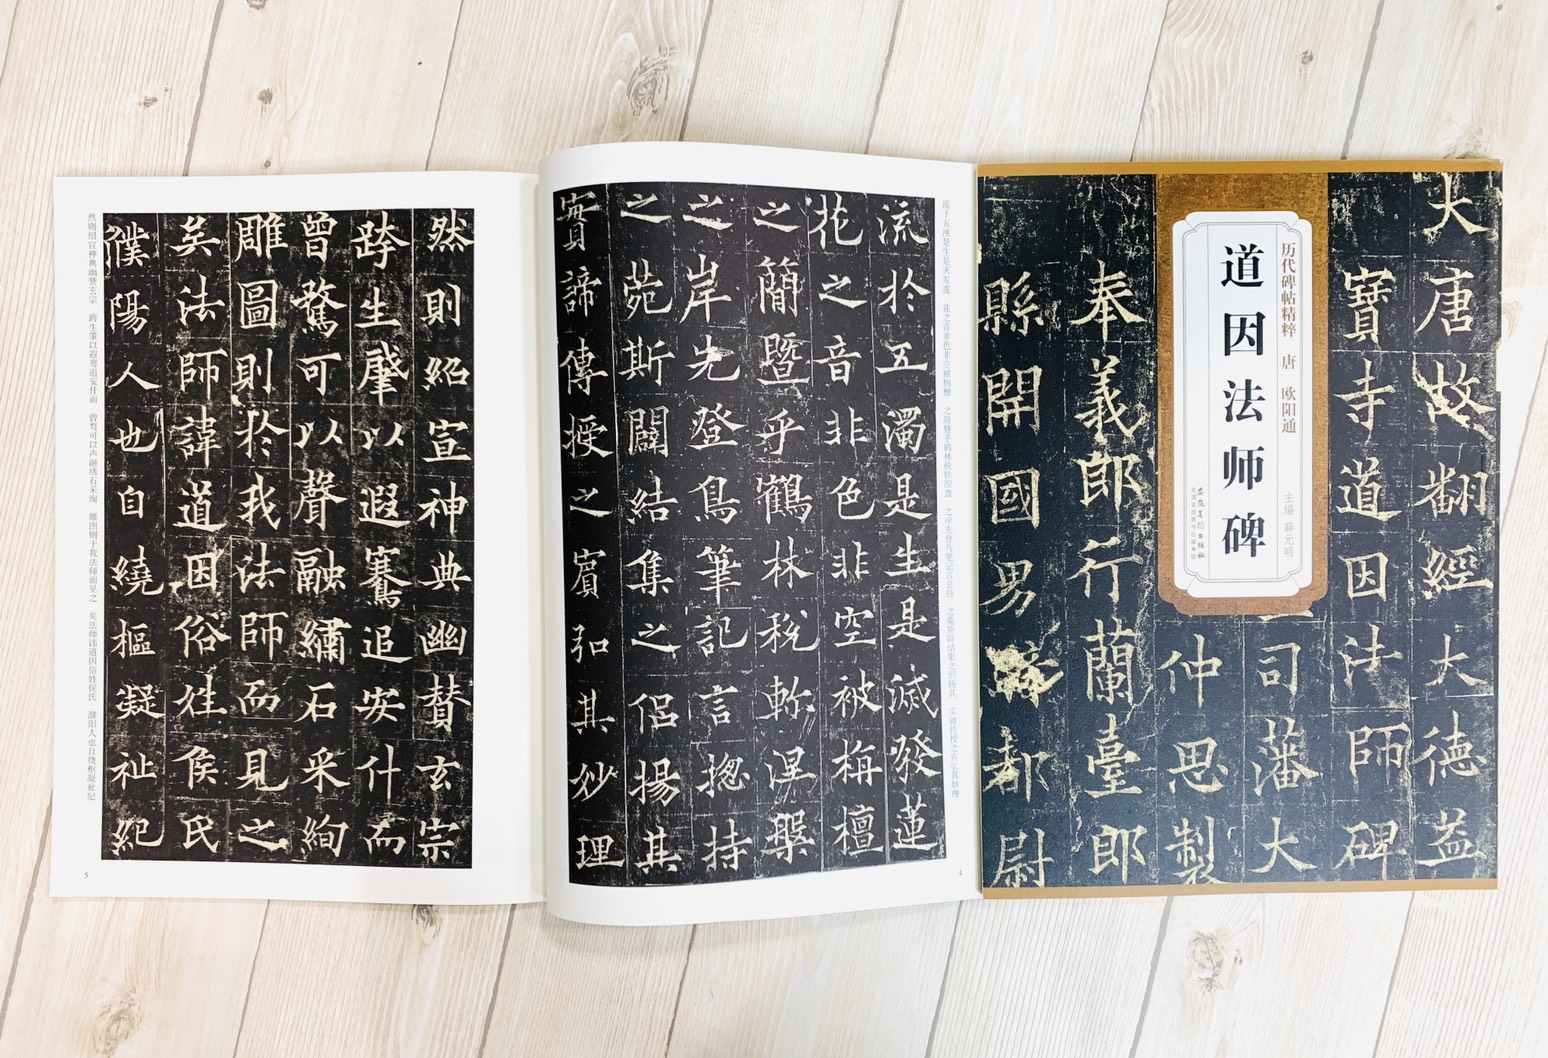 大唐故翻經大德益
寶寺道因法師碑
历代碑帖精粹 唐 欧阳通
主编 薛元明
道因法师碑
安徽美术出版社
全国百佳图书出版单位
司藩大
仲思製
奉義郎行蘭臺郎
縣開國男騎都尉
流于五浊是生是灭发莲 花之音非色非空被栴檀 之简暨乎鹤林税轸涅盘 之岸先登鸟笔记言总持 之苑斯辟结集之侣扬其 实谛传授之宾弘其妙理
流於五濁是生是滅發蓮
花之音非色非空被栴檀
之簡暨乎鶴林稅軫涅槃
之岸先登鳥筆記言揔持
之苑斯闢結集之侶揚其
實諦傳授之賓弘其妙理
4
然則紹宣神典幽贊玄宗
跨生肇以遐騫追安什而
曾騖可以聲融繡石采絢
雕圖則於我法師而見之
矣法師諱道因俗姓侯氏
濮陽人也自繞樞凝祉紀
然则绍宣神典幽赞玄宗 跨生肇以遐骞追安什而 曾骛可以声融绣石采绚 雕图则于我法师而见之 矣法师讳道因俗姓侯氏 濮阳人也自绕枢凝祉纪
5